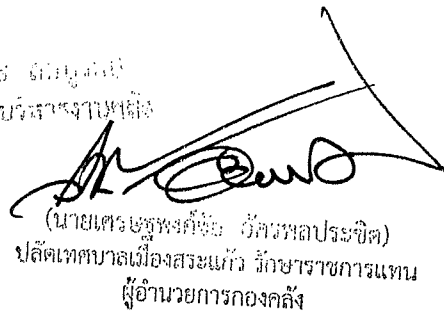 บริหารงานคลัง
(นายเศรษฐพงศ์ชัย อัครพลประชิต)
ปลัดเทศบาลเมืองสระแก้ว รักษาราชการแทน
ผู้อำนวยการกองคลัง